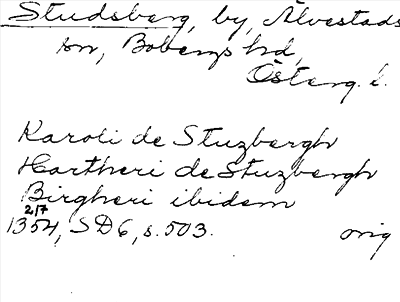 Studsberg, by, Älvestads
sn, Bobergs hd,
Österg. l.
Karoli de Stuzbergh
Hartheri de Stuzbergh
Birgheri ibidem
2/7
1354, SD6, s. 503. orig